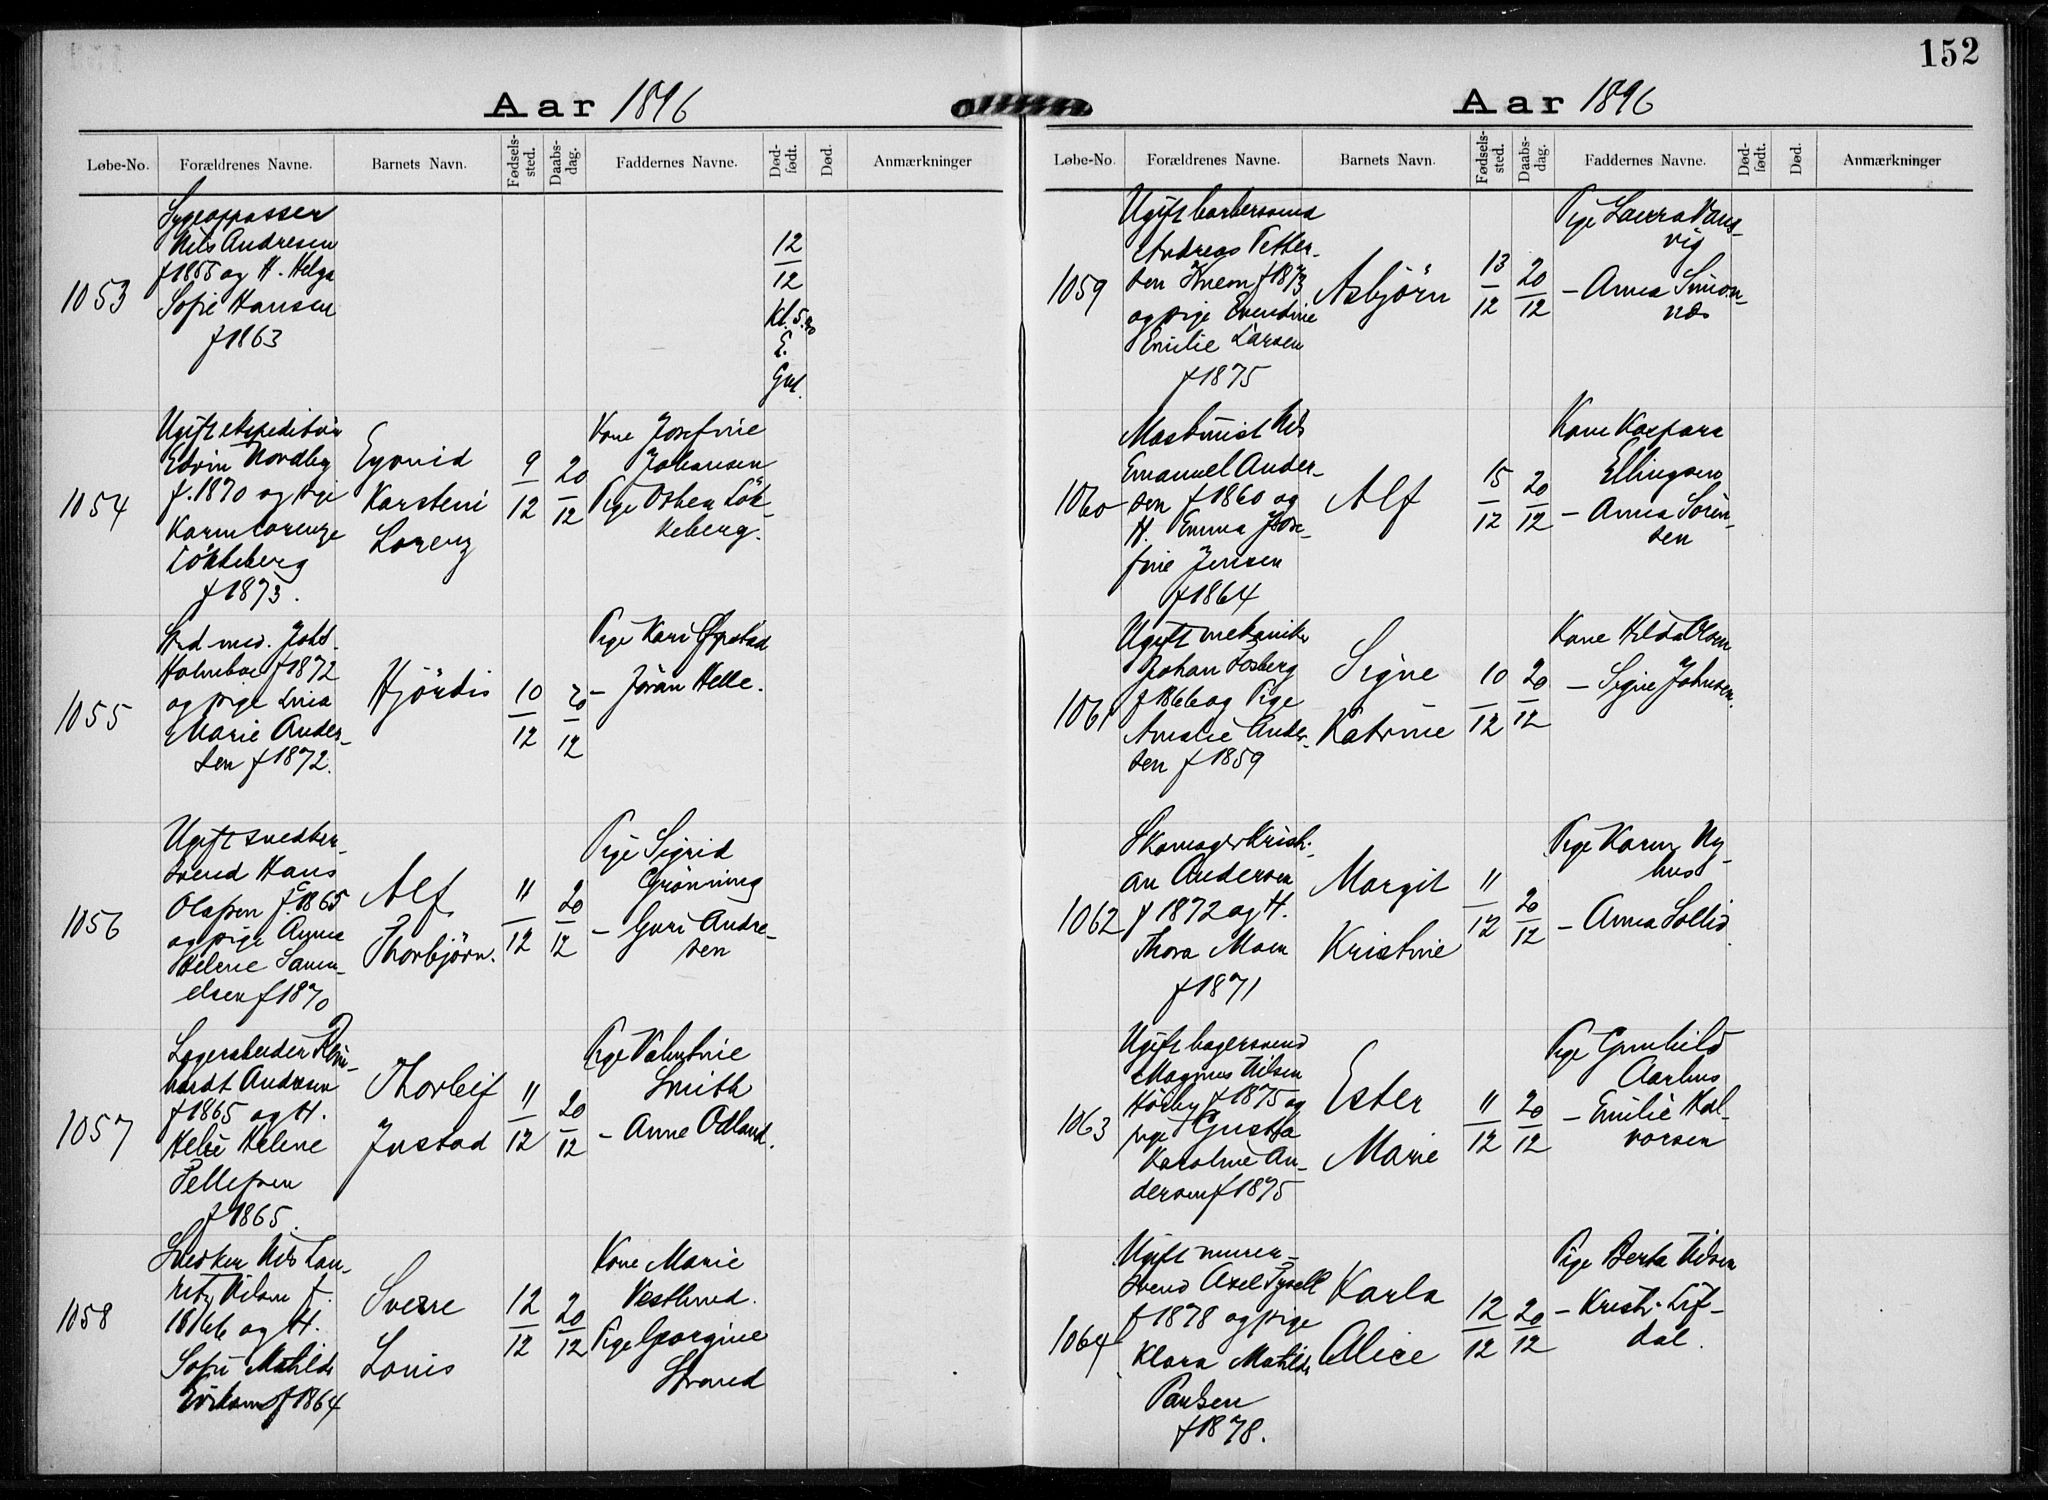 Aar 1896
Løbe-No. Forældrenes Navne. Barnets Navn. Fødsels-sted. Daabs-dag. Faddernes Navne. Død-født. Død. Anmærkninger
1053
Sygeopasser
Nils Andresen
f 1855 og H. Helga
Sofie Hansen
f 1863
12
12
Kl. 5.
E.
Gut.
1054
Ugift ekspeditør
Edvin Nordby
f. 1870 og pige
Karen Lorenze
Lökkeberg
f 1873.
Eyvind
Karsteni
Lorenz
9
12
20
12
Kone Josefine
Johansen
Pige Lök-
keberg.
1055
Stud. med. Johs
Holmboe f 1872
og pige Lina
Marie Ander-
sen f 1872.
Hjördis
10
12
20
12
Pige Kari Opstad
– Jöran Helle.
1056
Ugift snedker-
svend Hans
Olafsen f. 1865
og pige Anna
Helene Samu-
elsen f 1870
Alf
Thorbjörn.
11
12
20
12
Pige Sigrid
Grönning
– Guri Andre-
sen
1057
Lagerarbeider Rein-
hardt Andresen
f 1865 og H.
Helene
Pellefsen
f 1865.
Thorleif
Justad
11
12
20
12
Pige Valentine
Smith
– Anne Odland.
1058
Snedker Nils Lau-
ritz Nilsen f.
1866 og H.
Sofie Mathilde
Eriksen f 1864
Sverre
Louis
12
12
20
12
Kone Marie
Vestlund.
Pige Georgine
Strand
152
Aar 1896
Løbe-No. Forældrenes Navne. Barnets Navn. Fødsels-sted. Daabs-dag. Faddernes Navne. Død-født. Død. Anmærkninger
1059
Ugift barbersvend
Andreas Petter-
sen f 1873
og pige
Emilie Larsen
f 1875
Asbjörn
13
12
20
12
Pige Laura Vans-
vig
– Anna Simon-
næs
1060
Maskinist Nils
Emanuel Ander-
sen f 1860 og
H. Emma Jose-
fine Jensen
f 1864
Alf
15
12
20
12
Kone Kaspara
Ellingsen
– Anna Sören-
sen
1061
Ugift mekaniker
Johan Fosberg
f 1866 og Pige
Amalie Ander-
sen f 1859
Signe
Katrine
10
12
20
12
Kone Hilda Olsen
– Signe Johnsen.
1062
Skomager Kristi-
an Andersen
f 1872 og H.
Thora Moen
f 1871
Margit
Kristine
11
12
20
12
Pige Karen Ny-
hus
– Anna Sollid.
1063
Ugift bagersvend
Magnus Nilsen
Höiby f 1875 og
pige Gusta
Karoline An-
dersen f 1875
Ester
Marie
11
12
20
12
Pige Gunhild
Aarhus
– Emilie Hal-
vorsen
1064
Ugift murer-
svend Axel Tysell
f 1878 og pige
Klara Mathilde
Paulsen
f 1878.
Karla
Alice
12
12
20
12
Pige Berta Nilsen
– Kristi Lif-
dal.